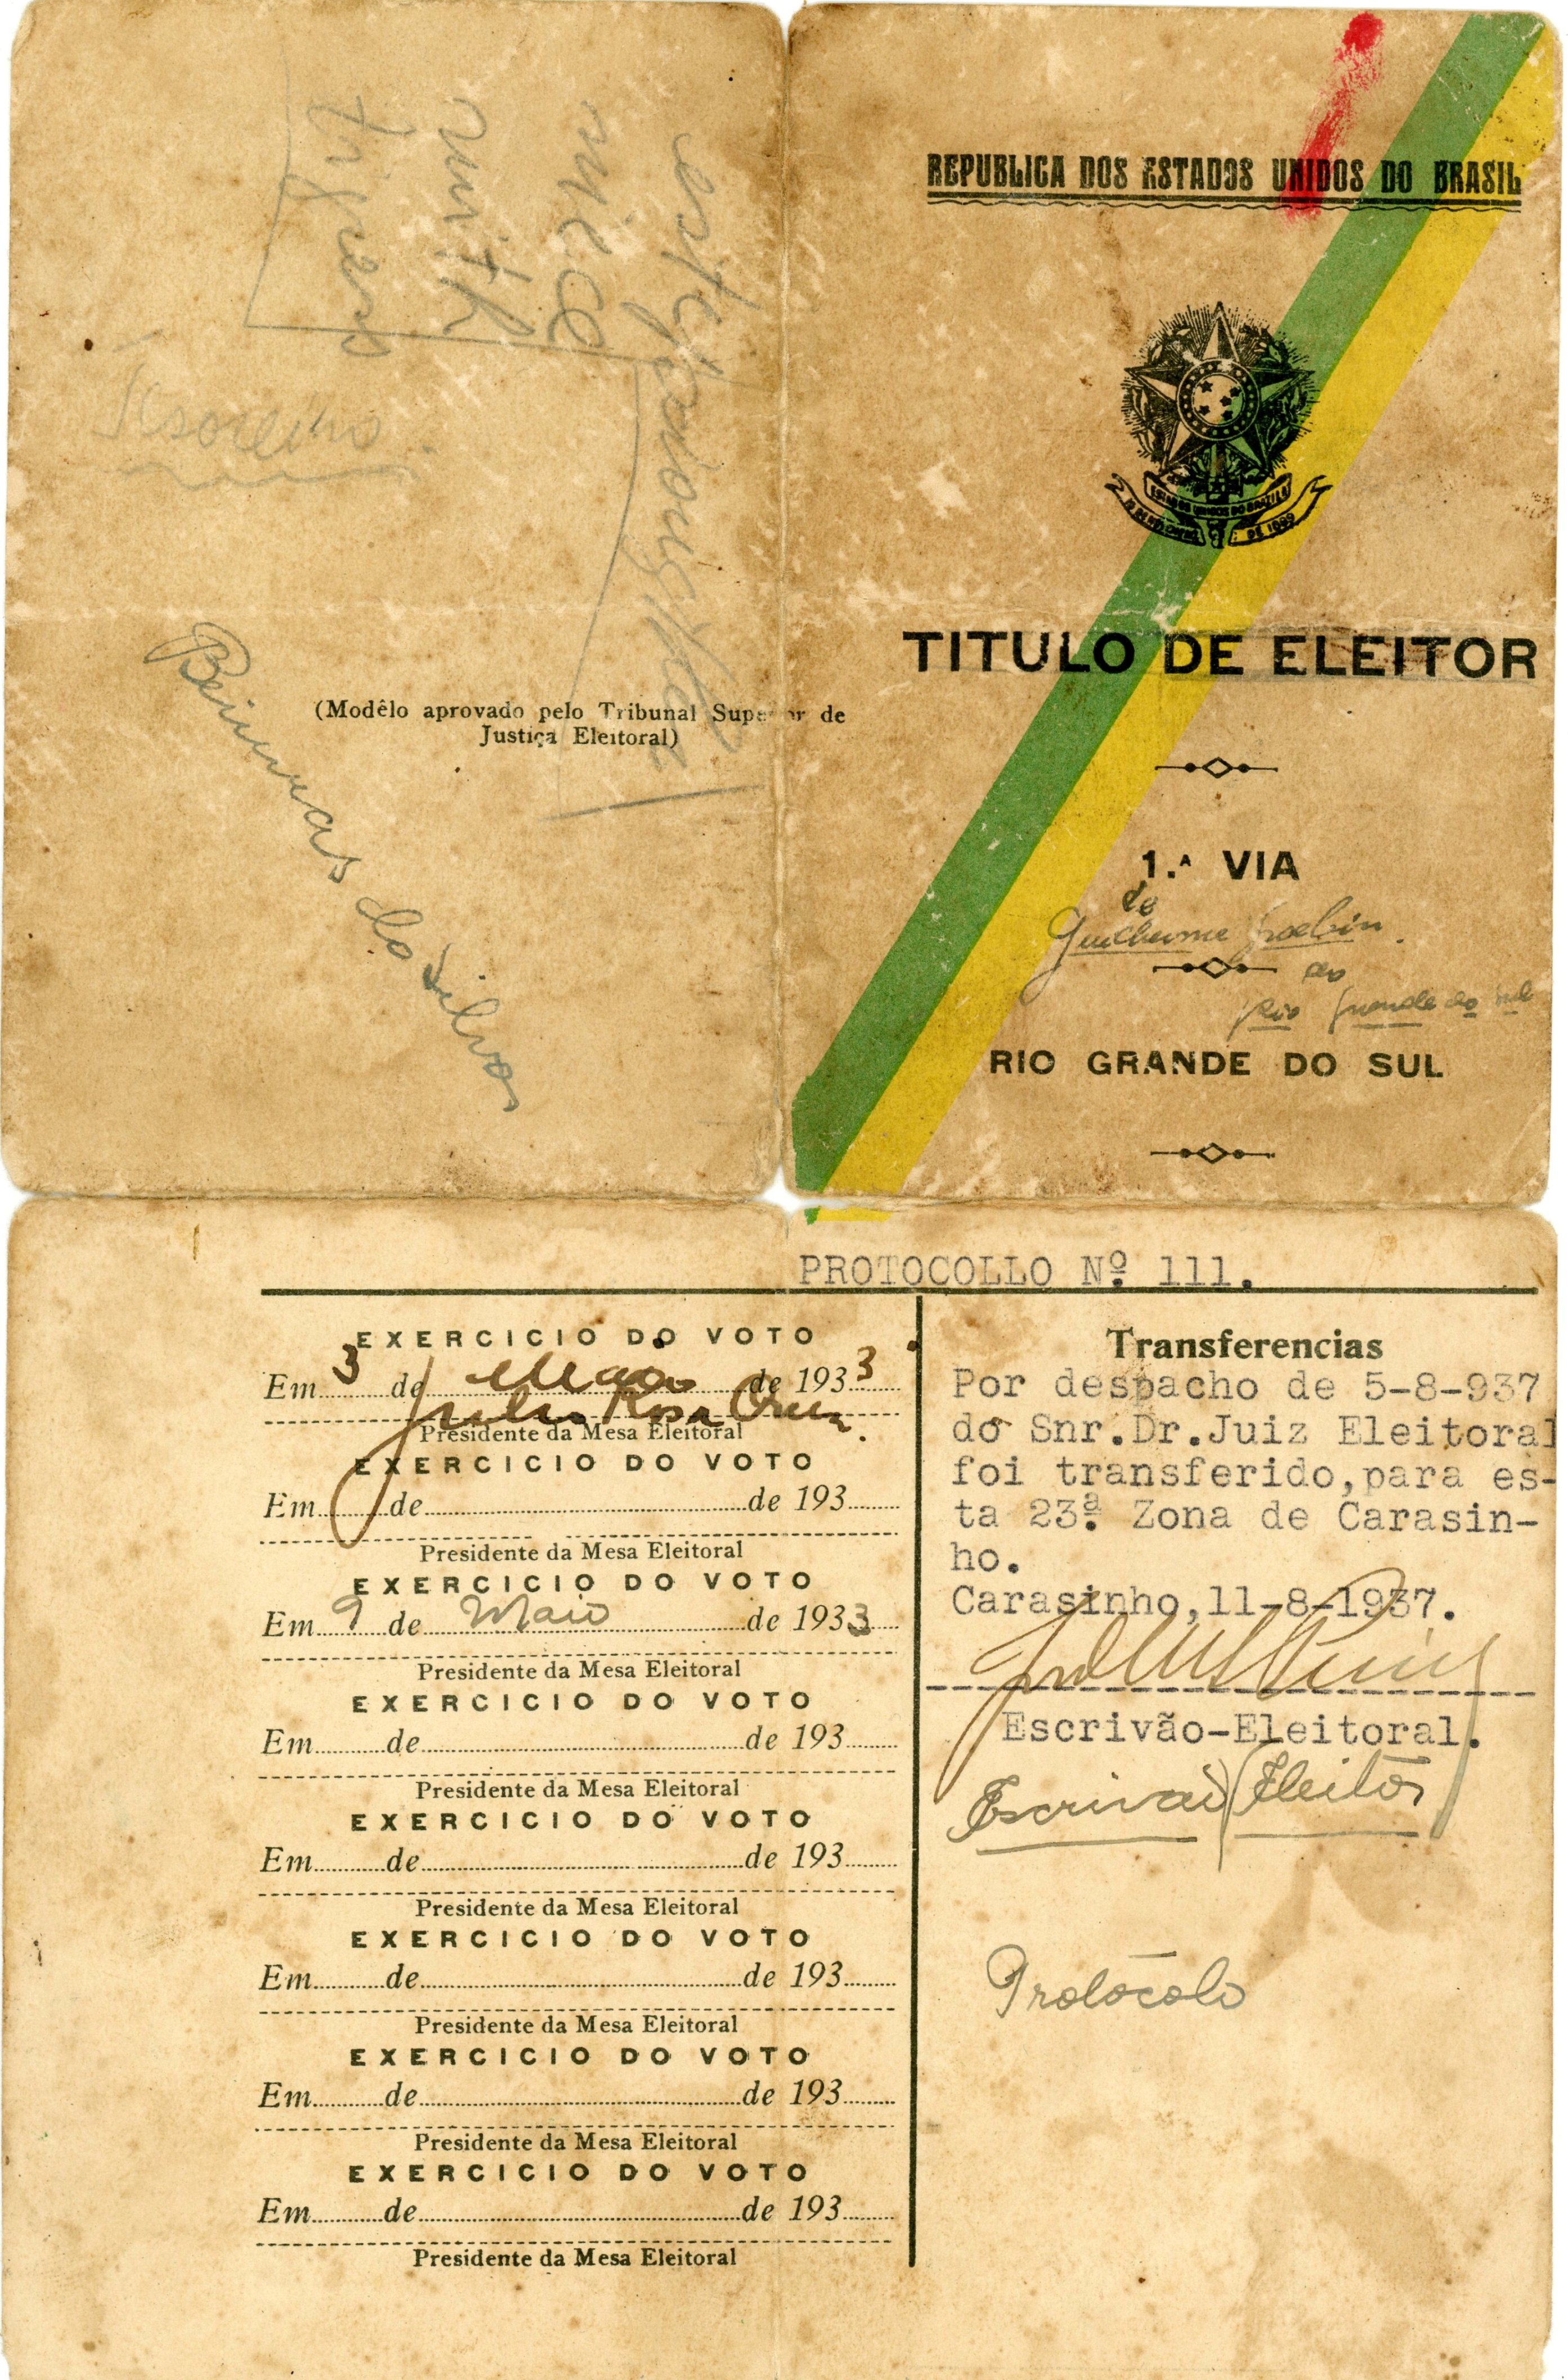 Tesoureiro
(Modêlo aprovado pelo Tribunal Superior de
Justiça Eleitoral)
da Silva
REPUBLICA DOS ESTADOS UNIDOS DO BRASIL
TITULO DE ELEITOR
1.ᴬ VIA
de
Guilherme
do
Rio Grande do Sul
RIO GRANDE DO SUL
PROTOCOLLO Nº 111.
EXERCICIO DO VOTO
Em 3 de Maio de 1933
Presidente da Mesa Eleitoral
EXERCICIO DO VOTO
Em de de 193
Presidente da Mesa Eleitoral
EXERCICIO DO VOTO
Em 9 de Maio de 1933
Presidente da Mesa Eleitoral
EXERCICIO DO VOTO
Em de de 193
Presidente da Mesa Eleitoral
EXERCICIO DO VOTO
Em de de 193
Presidente da Mesa Eleitoral
EXERCICIO DO VOTO
Em de de 193
Presidente da Mesa Eleitoral
EXERCICIO DO VOTO
Em de de 193
Presidente da Mesa Eleitoral
EXERCICIO DO VOTO
Em de de 193
Presidente da Mesa Eleitoral
Transferencias
Por despacho de 5-8-937
do Snr.Dr.Juiz Eleitoral
foi transferido,para es-
ta 23ª Zona de Carasin-
ho.
Carasinho,11-8-1937.
Escrivão-Eleitoral.
Escrivaõ Eleitor
Protocolo